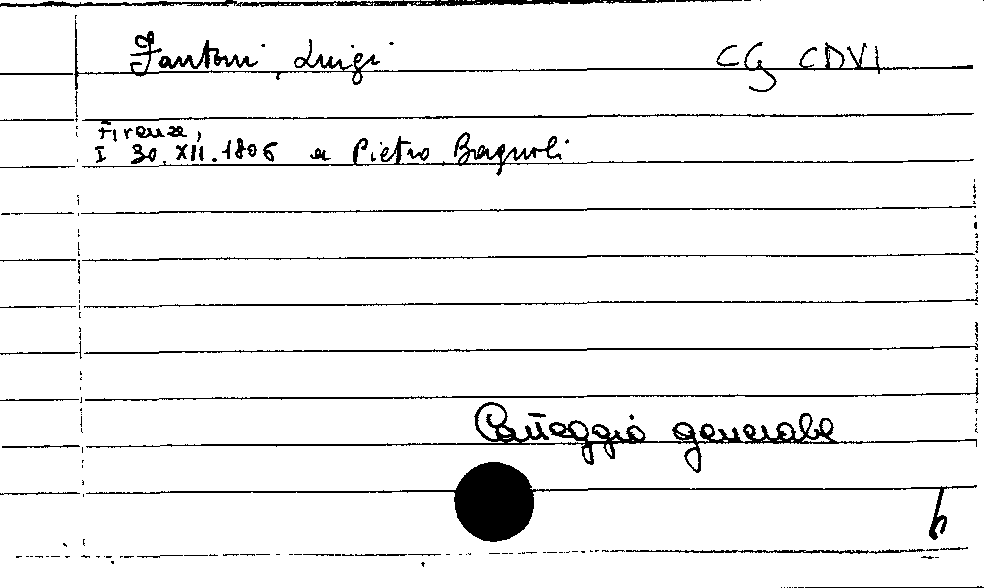 Fantoni, Luigi CG CDVI
Firenze,
I 30.XII.1806 a Pietro Bagnoli
Carteggio generale